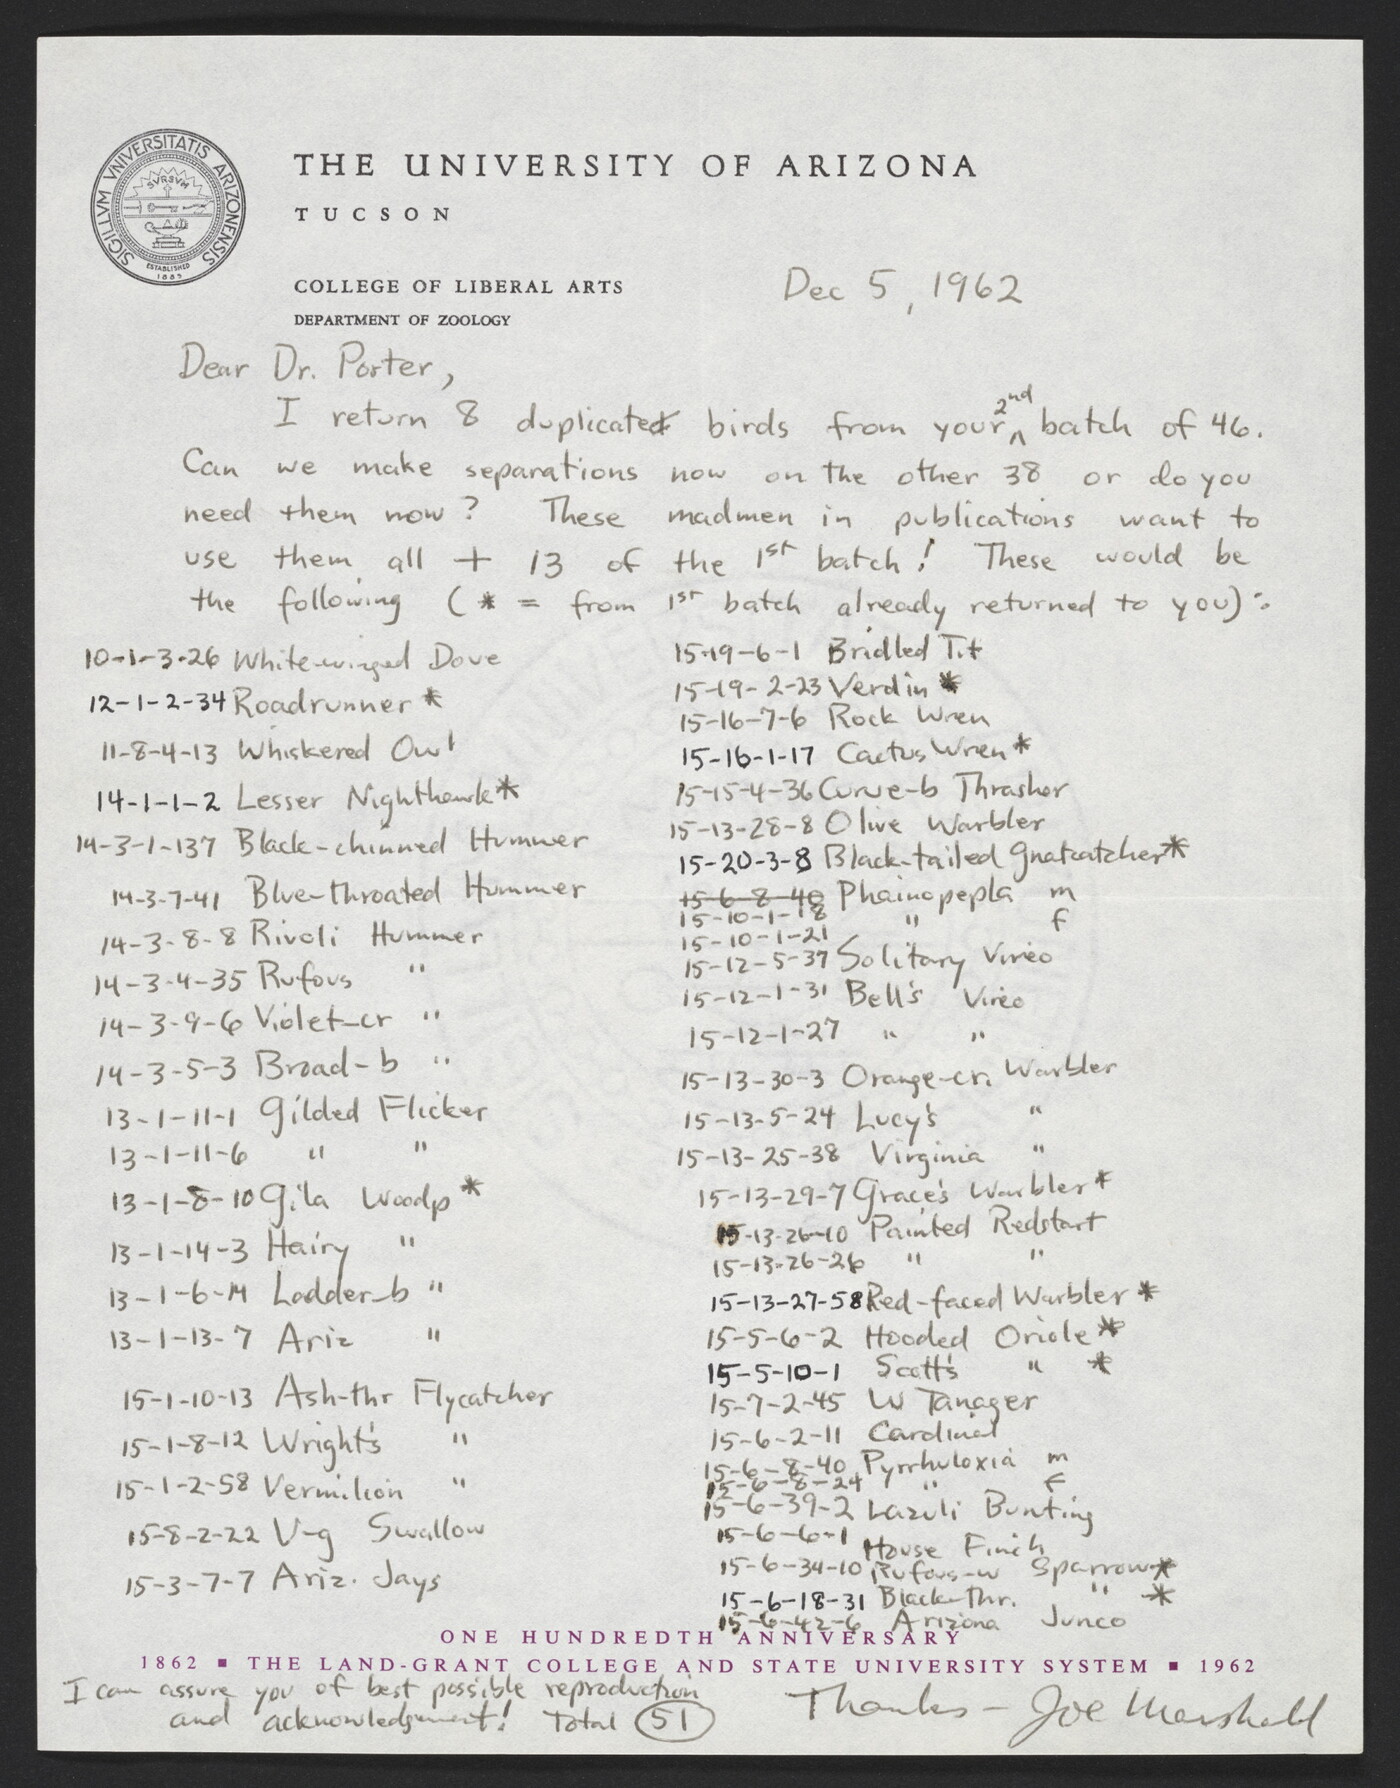 SIGILLVM VNIVERSITATIS ARIZONENSIS
SVRSVM
ESTABLISHED
1885
THE UNIVERSITY OF ARIZONA
TUCSON
COLLEGE OF LIBERAL ARTS
DEPARTMENT OF ZOOLOGY
Dec 5, 1962
Dear Dr. Porter,
I return 8 duplicate birds from your 2nd batch of 46.
Can we make separations now on the other 38 or do you
need them now? These madmen in publications want to
use them all + 13 of the 1st batch! These would be
the following (* = from 1st batch already returned to you):
10-1-3-26 White-winged Dove
12-1-2-34 Roadrunner *
11-8-4-13 Whiskered Owl
14-1-1-2 Lesser Nighthawk *
14-3-1-137 Black-chinned Hummer
14-3-7-41 Blue-throated Hummer
14-3-8-8 Rivoli Hummer
14-3-4-35 Rufous "
14-3-9-6 Violet-cr "
14-3-5-3 Broad-b "
13-1-11-1 Gilded Flicker
13-1-11-6 " "
13-1-8-10 Gila Woodp *
13-1-14-3 Hairy "
13-1-6-14 Ladder-b "
13-1-13-7 Ariz "
15-1-10-13 Ash-thr Flycatcher
15-1-8-12 Wright's "
15-1-2-58 Vermilion "
15-8-2-22 V-g Swallow
15-3-7-7 Ariz. Jays
15-19-6-1 Bridled Tit
15-19-2-23 Verdin *
15-16-7-6 Rock Wren
15-16-1-17 Cactus Wren *
15-15-4-36 Curve-b Thrasher
15-13-28-8 Olive Warbler
15-20-3-8 Black-tailed Gnatcatcher *
15-6-8-40 Phainopepla m
15-10-1-18 " f
15-10-1-21
15-12-5-37 Solitary Vireo
15-12-1-31 Bell's Vireo
15-12-1-27 " "
15-13-30-3 Orange-cr. Warbler
15-13-5-24 Lucy's "
15-13-25-38 Virginia "
15-13-29-7 Grace's Warbler *
15-13-26-10 Painted Redstart
15-13-26-26 " "
15-13-27-58 Red-faced Warbler *
15-5-6-2 Hooded Oriole *
15-5-10-1 Scott's " *
15-7-2-45 W Tanager
15-6-2-11 Cardinal
15-6-8-40 Pyrrhuloxia m
15-6-8-24 " f
15-6-39-2 Lazuli Bunting
15-6-6-1 House Finch
15-6-34-10 Rufous-w Sparrow *
15-6-18-31 Black-thr. " *
15-6-42-6 Arizona Junco
ONE HUNDREDTH ANNIVERSARY
1862 ■ THE LAND-GRANT COLLEGE AND STATE UNIVERSITY SYSTEM ■ 1962
I can assure you of best possible reproduction
and acknowledgement! Total 51
Thanks - Joe Marshall